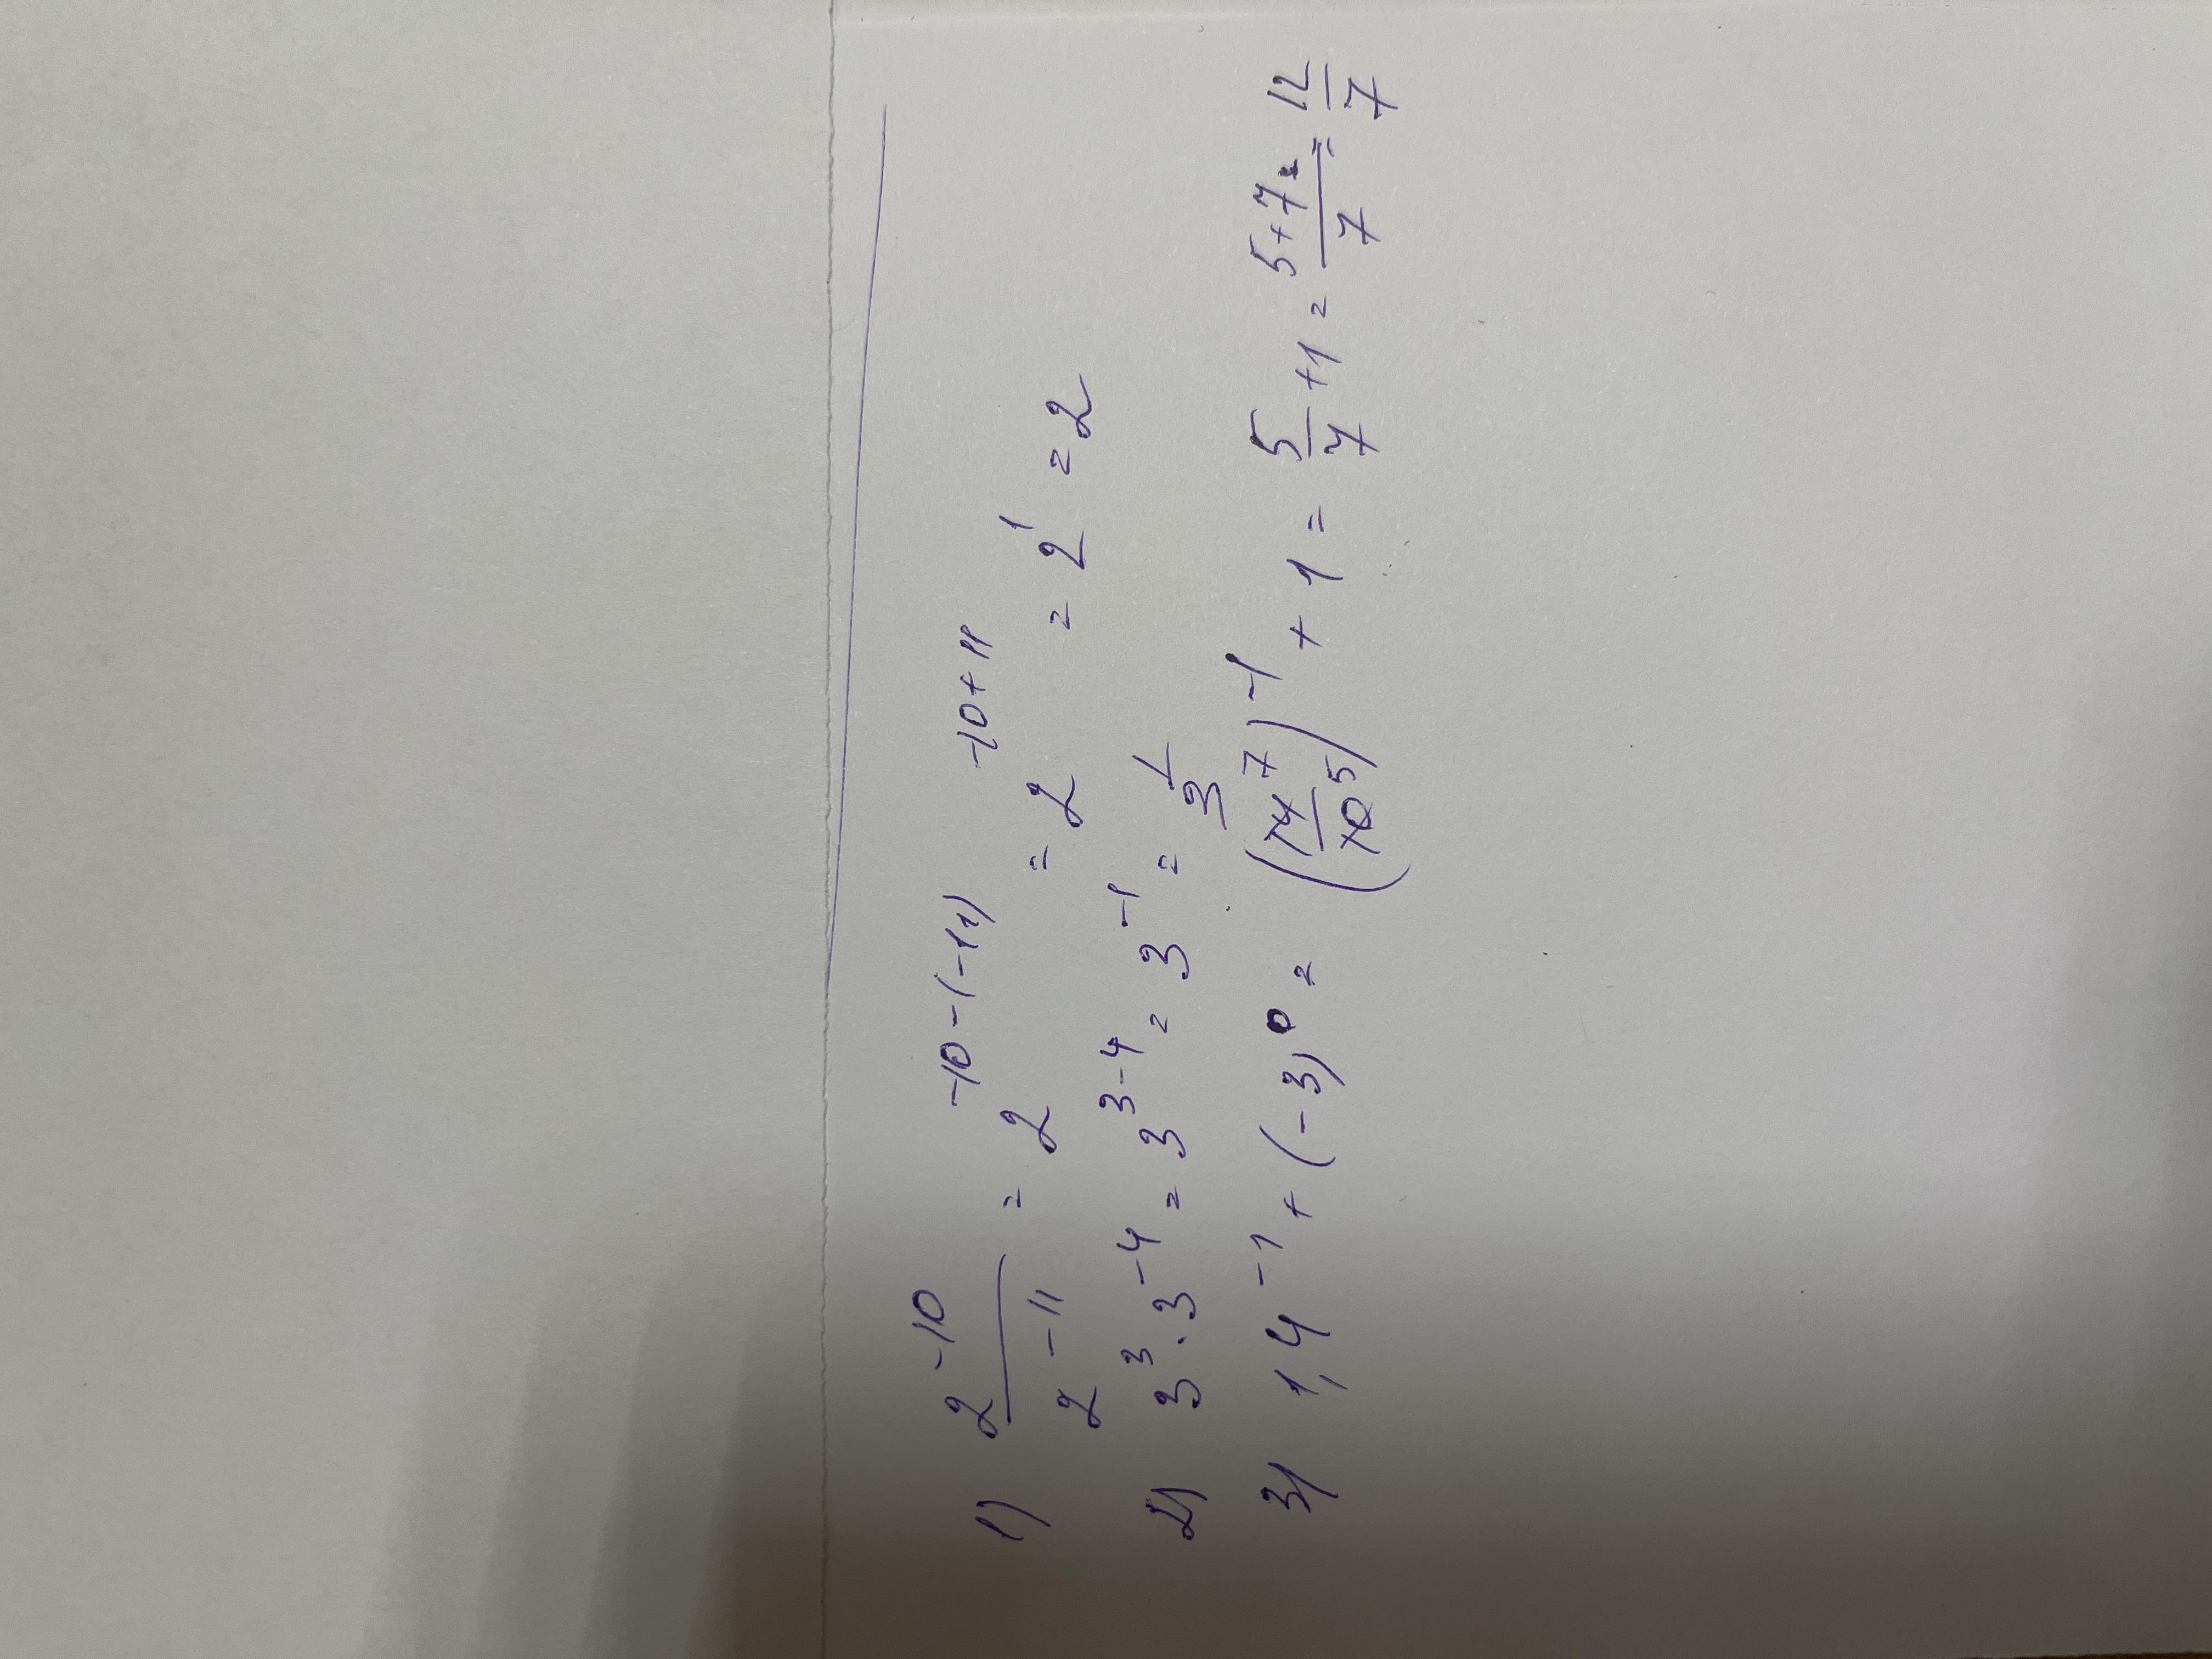 1) 2^-10 / 2^-11 = 2^-10-(-11) = 2^-10+11 = 2^1 = 2
2) 3^3 · 3^-4 = 3^3-4 = 3^-1 = 1/3
3) 1,4^-1 + (-3)^0 = (14 7 / 10 5)^-1 + 1 = 5/7 + 1 = 5+7/7 = 12/7